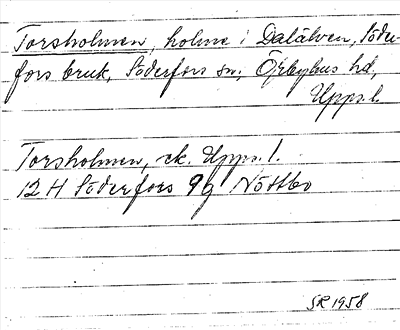 Torsholmen, holme i Dalälven, Söder-
fors bruk, Söderfors sn, Örbyhus hd,
Upps.l.
Torsholmen, ek. Upps. l.
12 H Söderfors 9g Nöttbo
SR 1958